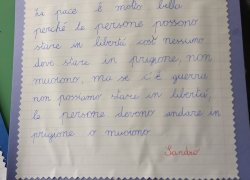 La pace è molto bella
perché le persone possono
stare in libertà così nessuno
deve stare in prigione, non
muoiono, ma se c'è guerra
non possiamo stare in libertà,
le persone devono andare in
prigione o muoiono.
Sandro